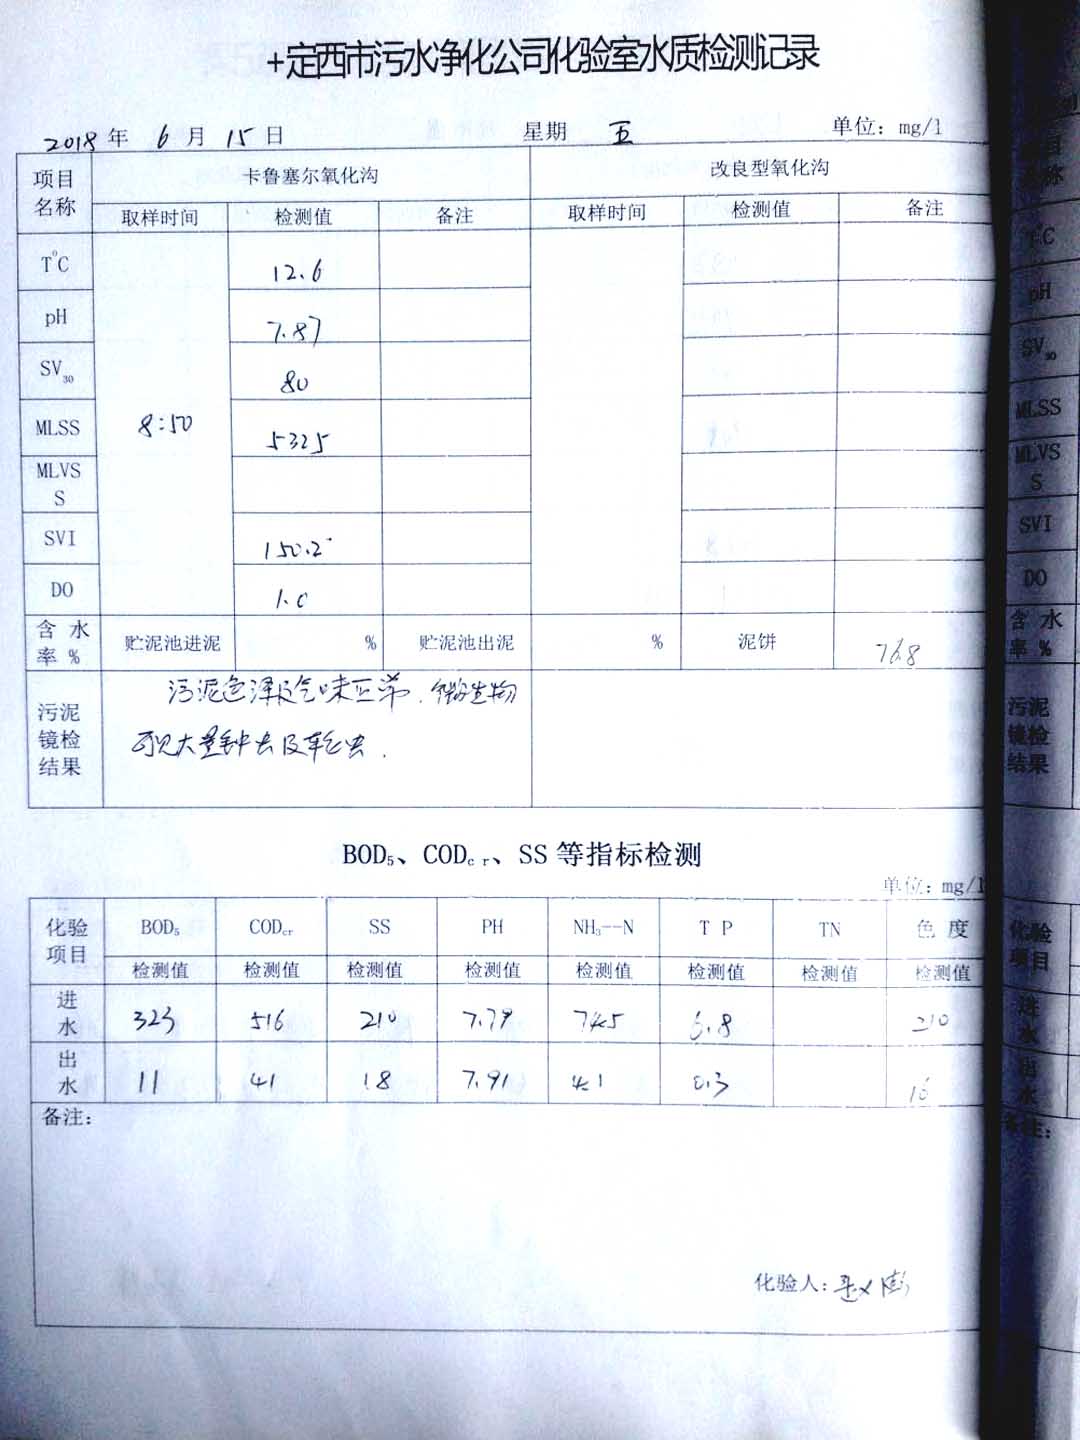 +定西市污水净化公司化验室水质检测记录
2018 年 6 月 15 日 星期 五 单位: mg/l
项目名称 卡鲁塞尔氧化沟 改良型氧化沟
取样时间 检测值 备注 取样时间 检测值 备注
T℃ 12.6
pH 7.87
SV30 80
MLSS 8:50 5325
MLVSS
SVI 150.2
DO 1.0
含水率% 贮泥池进泥 % 贮泥池出泥 % 泥饼 76.8
污泥镜检结果 污泥色泽及气味正常.微生物
可见大量钟虫及轮虫.
BOD5、CODcr、SS等指标检测
单位: mg/l
化验项目 BOD5 CODcr SS PH NH3--N T P TN 色 度
检测值 检测值 检测值 检测值 检测值 检测值 检测值 检测值
进水 323 516 210 7.79 74.5 6.8 210
出水 11 41 18 7.91 4.1 0.3 16
备注:
化验人:
项目名称
T℃
pH
SV30
MLSS
MLVSS
SVI
DO
含水率%
污泥镜检结果
化验项目
进水
出水
备注: